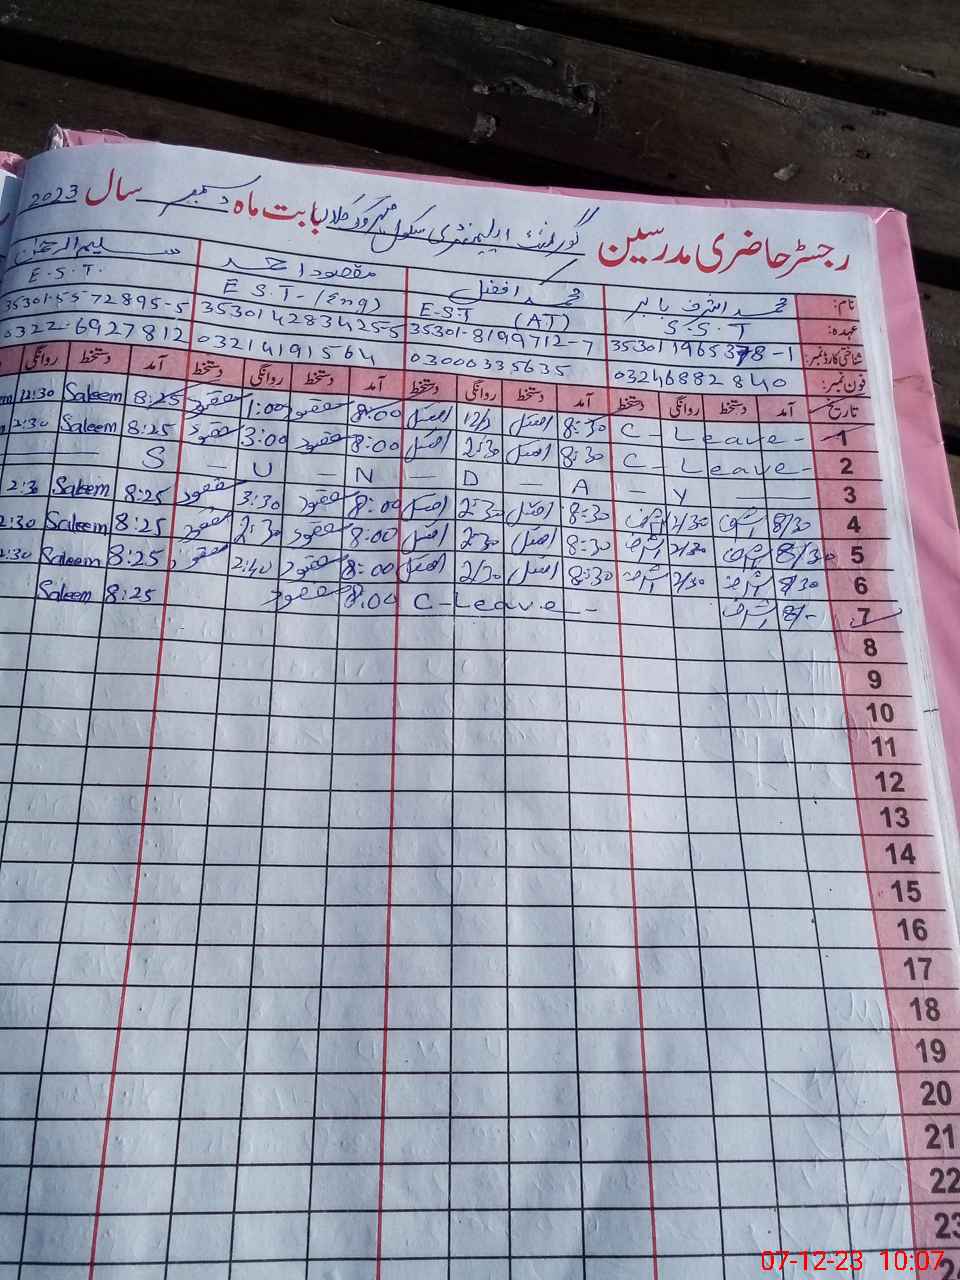 رجسٹر حاضری مدرسین گورنمنٹ ایلیمنٹری سکول بابت ماہ دسمبر سال 2023
نام: محمد اشرف بابر محمد افضل مقصود احمد سلیم الرحمٰن
عہدہ: S.S.T E-S.T (A.T) E S.T-(Eng) E.S.T.
شناختی کارڈ نمبر: 35301-8199712-7 35301-5572895-5
فون نمبر: 03246882840 03006335635 03214191564 0322-6927812
تاریخ آمد دستخط روانگی دستخط آمد دستخط روانگی دستخط آمد دستخط روانگی دستخط آمد دستخط روانگی
1 C-Leave- 8:30 افضل افضل 8:00 مقصود 1:00 مقصود 8:25 Saleem
2 C-Leave- 8:30 افضل 2:30 افضل 8:00 مقصود 3:00 مقصود 8:25 Saleem 2:30
3 S - U - N - D - A - Y
4 8/30 اشرف 2/30 اشرف 8:30 افضل 2:30 افضل 8:00 مقصود 3:30 مقصود 8:25 Saleem
5 8/30 اشرف 2/30 اشرف 8:30 افضل 2:30 افضل 8:00 مقصود 2:30 مقصود 8:25 Saleem 2:30
6 8/30 اشرف 2/30 اشرف 8:30 افضل 2/30 افضل 8:00 مقصود 2:40 مقصود 8:25 Saleem 2:30
7 8/- اشرف C-Leave- 8:00 مقصود 8:25 Saleem
8
9
10
11
12
13
14
15
16
17
18
19
20
21
22
23
07-12-23 10:07